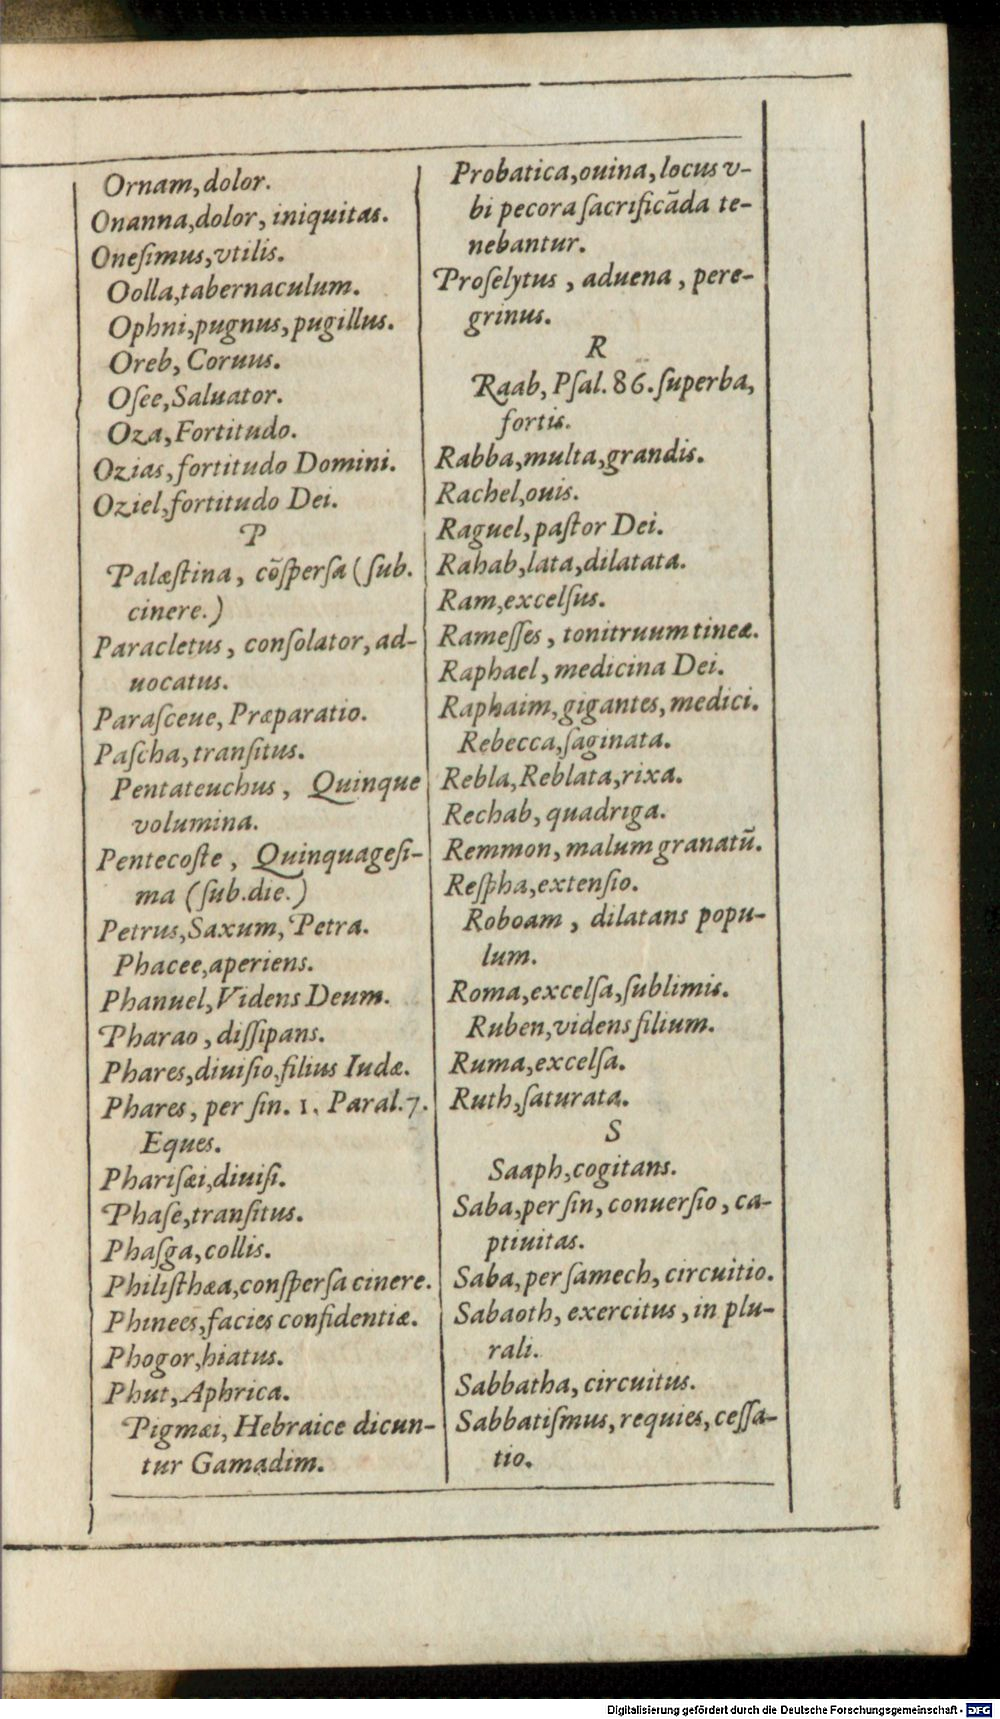 Ornam, dolor.
Onanna, dolor, iniquitas.
Oneſimus, vtilis.
Oolla, tabernaculum.
Ophni, pugnus, pugillus.
Oreb, Coruus.
Oſee, Saluator.
Oza, Fortitudo.
Ozias, fortitudo Domini.
Oziel, fortitudo Dei.
P
Palæſtina, cõſperſa (ſub.
cinere.)
Paracletus, conſolator, ad-
uocatus.
Paraſceue, Præparatio.
Paſcha, tranſitus.
Pentateuchus, Quinque
volumina.
Pentecoſte, Quinquageſi-
ma (ſub. die.)
Petrus, Saxum, Petra.
Phacee, aperiens.
Phanuel, Videns Deum.
Pharao, diſſipans.
Phares, diuiſio, filius Iudæ.
Phares, per ſin. 1. Paral. 7.
Eques.
Phariſæi, diuiſi.
Phaſe, tranſitus.
Phaſga, collis.
Philiſthæa, conſperſa cinere.
Phinees, facies confidentiæ.
Phogor, hiatus.
Phut, Aphrica.
Pigmæi, Hebraice dicun-
tur Gamadim.
Probatica, ouina, locus v-
bi pecora ſacrificãda te-
nebantur.
Proſelytus, aduena, pere-
grinus.
R
Raab, Pſal. 86. ſuperba,
fortis.
Rabba, multa, grandis.
Rachel, ouis.
Raguel, paſtor Dei.
Rahab, lata, dilatata.
Ram, excelſus.
Rameſſes, tonitruum tineæ.
Raphael, medicina Dei.
Raphaim, gigantes, medici.
Rebecca, ſaginata.
Rebla, Reblata, rixa.
Rechab, quadriga.
Remmon, malum granatũ.
Reſpha, extenſio.
Roboam, dilatans popu-
lum.
Roma, excelſa, ſublimis.
Ruben, videns filium.
Ruma, excelſa.
Ruth, ſaturata.
S
Saaph, cogitans.
Saba, per ſin, conuerſio, ca-
ptiuitas.
Saba, per ſamech, circuitio.
Sabaoth, exercitus, in plu-
rali.
Sabbatha, circuitus.
Sabbatiſmus, requies, ceſſa-
tio.
Digitalisierung gefördert durch die Deutsche Forschungsgemeinschaft - DFG